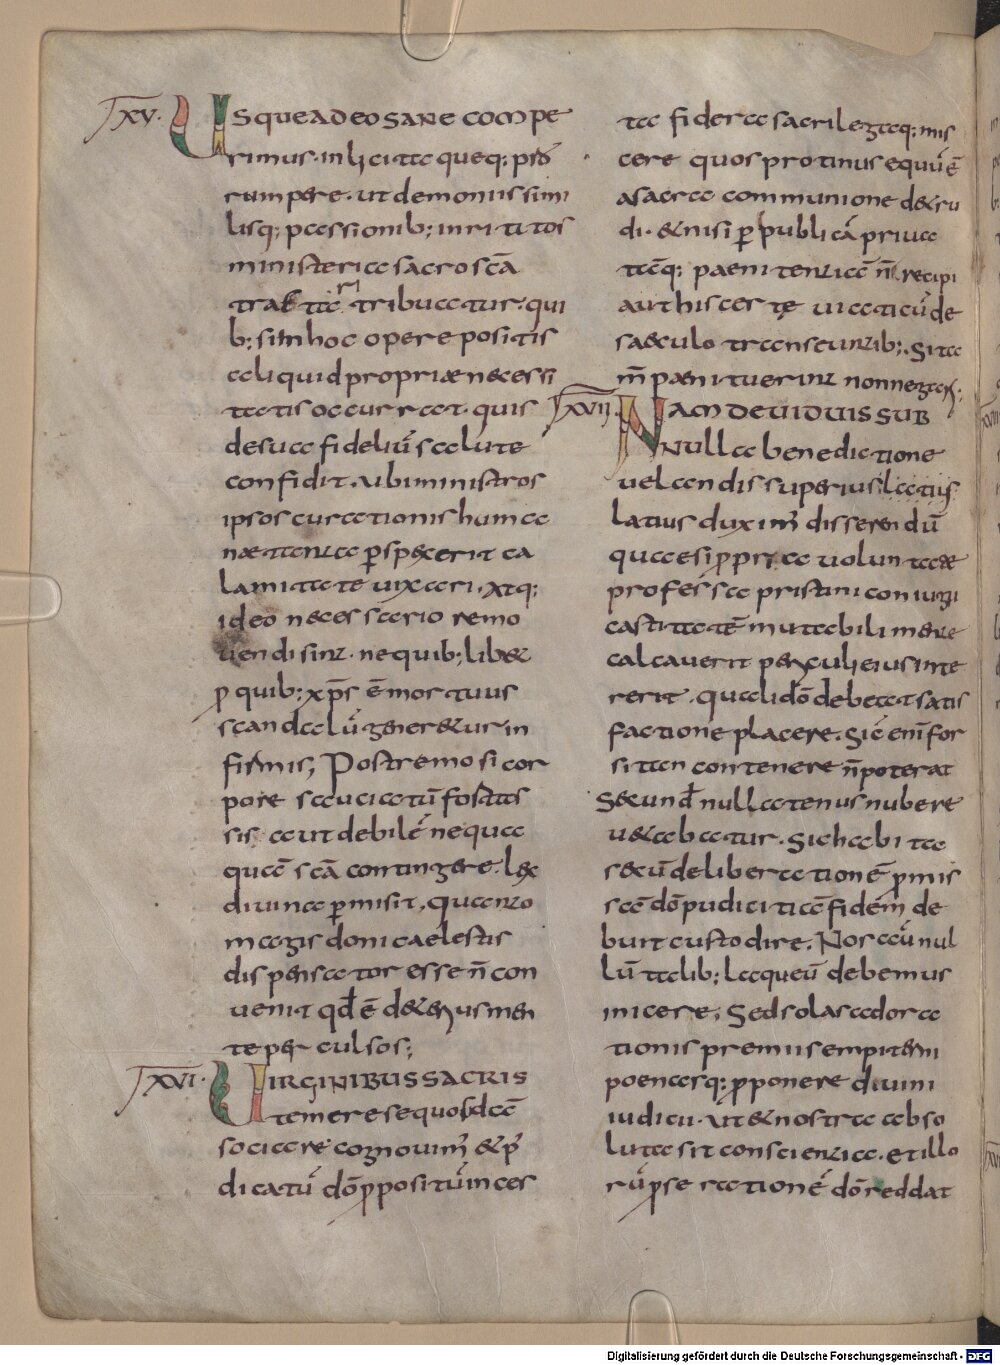 XV. Usque adeo sane compe
rimus. inlicita queq; p̄o
rumpere. ut demoniis simi
lisq; passionib; inrititos
ministeria sacrosc̄a
traktar̄ tribuatur. qui
b; si inhoc opere positis
aliquid propriæ necessi
tatis occurrat. quis
desua fideliū salute
confidit. ubi ministros
ipsos curationis huma
næ tanta ꝑspexerit ca
lamitate uixari. Atq;
ideo necessario remo
uendi sint. ne quib; libet
ꝓ quib; xp̄s ē mortuus
scandalū generetur in
firmis; Postremo si cor
pore sauciatū fos tas
sis aut debilē nequa
quā sc̄a contingere. lex
diuina ꝑmisit, quanto
magis doni caelestis
dispensator esse n̄ con
uenit qd̄ ē deterius men
te perculsos;
XVI. Uirginibus sacris
temere se quosdā
sociare cognouim̄ & p̄
dicatū dō ꝓpositū inces
ta fidera sacrilegaq; mis
cere quos protinus equū ē
a sacra communione detru
di. & nisi ꝑ publicā priua
tāq; paenitentiā n̄ recipi
aut his certe uiaticū de
saeculo transeuntib; si ta
m̄ paenituerint non negari.
XVII. Nam de uiduis sub
nulla benedictione
uelandis superius latius
latius duxim̄ disserendū
quae si ꝓpria uoluntate
professa pristini coniugi
castitatē mutabili mente
calcauerit periculi eius inte
rerit. quali dō debeat satis
factione placere. Sic enī for
sitan contenere n̄ poterat
Secund̄ nullatenus nubere
uetabatur. Sic habita
secū deliberationē ꝓmis
sā dō pudicitiā fidem̄ de
buit custodire. Nos aū nul
lū talib; laqueū debemus
inicere; Sed solas adorta
tionis premii sempiterni
poenasq; ꝓponere diuini
iudicii. ut & nostra abso
luta sit conscientia. et illo
rū ꝓ se rationē dō reddat
Digitalisierung gefördert durch die Deutsche Forschungsgemeinschaft - DFG